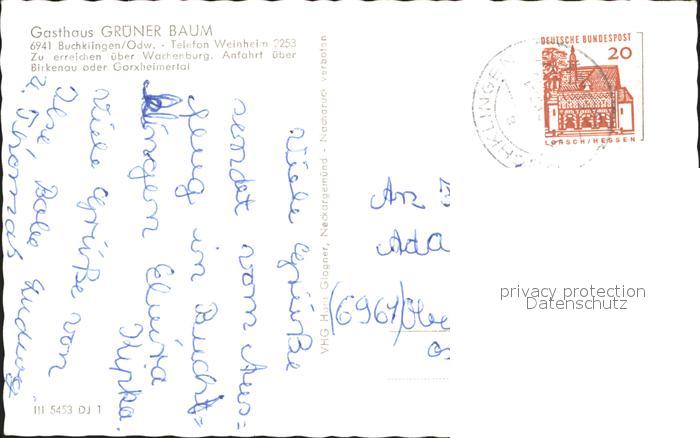 Gasthaus GRÜNER BAUM
6941 Buchklingen/Odw. - Telefon Weinheim 2253
Zu erreichen über Wachenburg. Anfahrt über
Birkenau oder Gorxheimertal
Viele Grüße
sendet vom Aus=
flug in Buchk=
lingen Elvira
Kipka.
Viele Grüße von
Ilse, Bolle Ludwig
u. Thomas
III 5453 DJ 1
VHG Hans Glogner, Neckargemünd - Nachdruck verboten
DEUTSCHE BUNDESPOST
20
LORSCH/HESSEN
BUCHKLINGEN
An
Ada
(6961)
privacy protection
Datenschutz